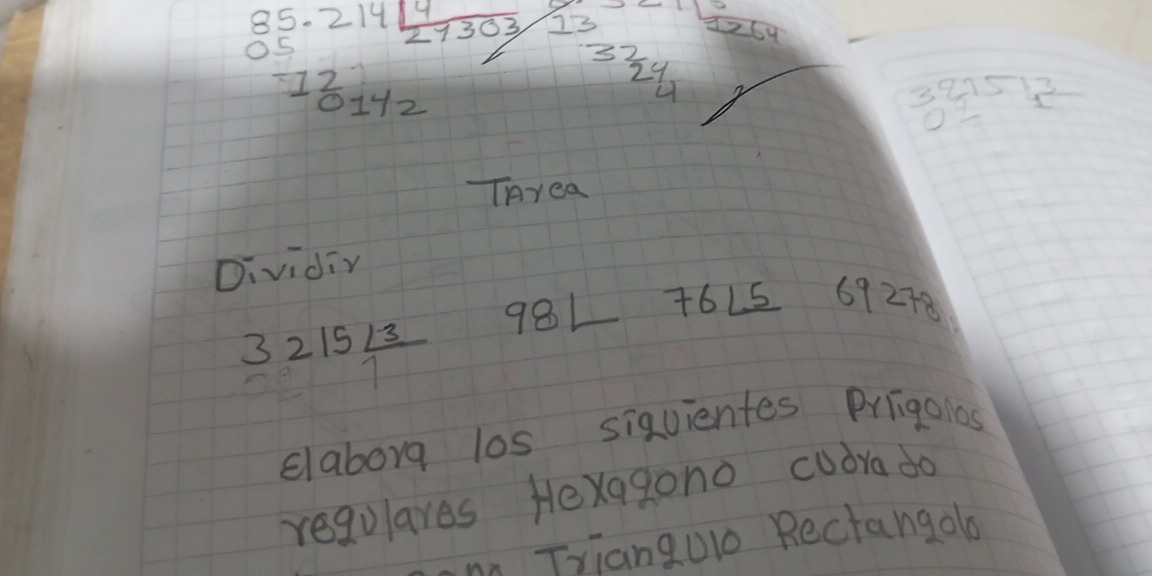 85.214 4
21303
05
12
0142
13
1264
32
24
4
32151 3
TArea
Dividir
3215 3 98 76 5 69278
Elabora los siguientes
regulares Hexagono cudrado
Triangulo Rectangolo